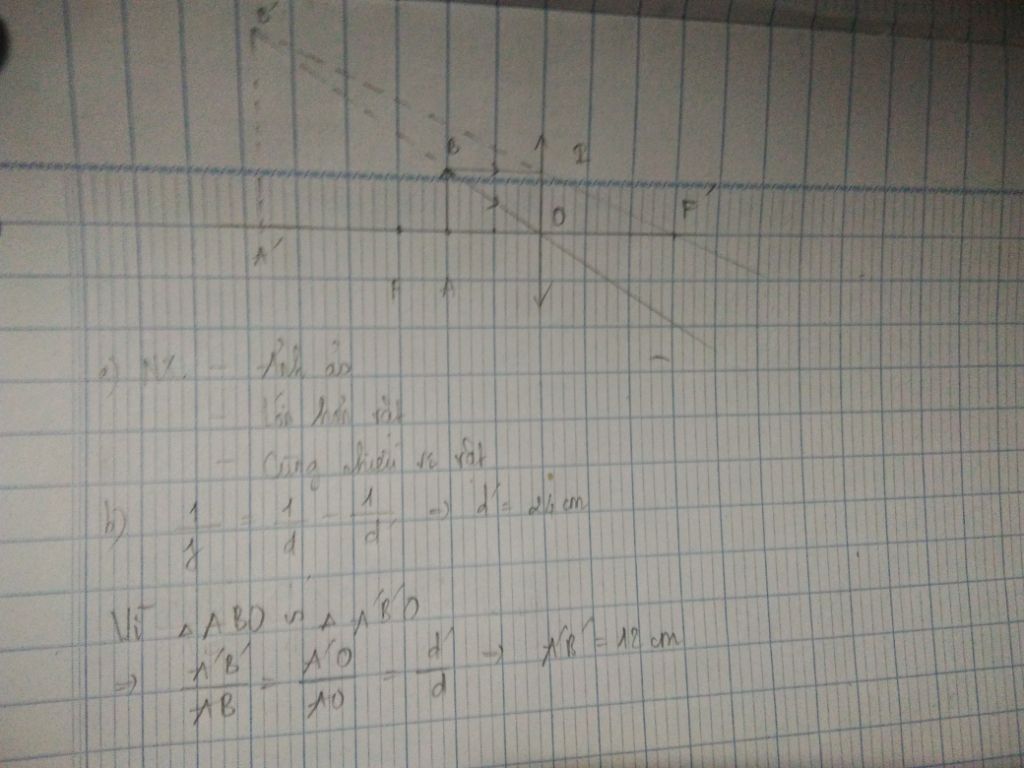 B'
B I
O F'
A' F A
a) NX: - Ảnh ảo
- Lớn hơn vật
- Cùng chiều vs vật
b) 1/f = 1/d - 1/d' → d' = 24 cm
Vì △ABO ∽ △A'B'O
⇒ A'B'/AB = A'O/AO = d'/d → A'B' = 12 cm